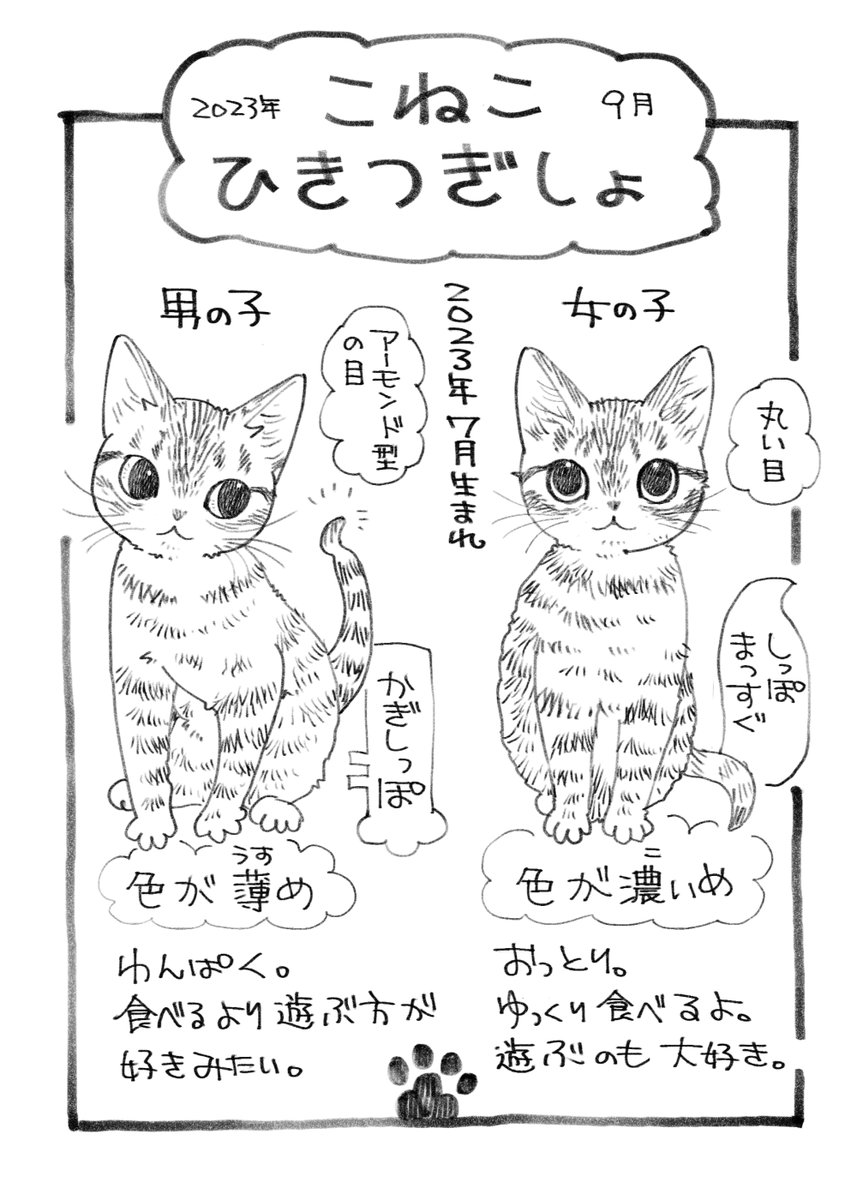 2023年
こねこ
9月
ひきつぎしょ
男の子
アーモンド型
の目
2023年7月生まれ
女の子
丸い目
かぎしっぽ
しっぽ
まっすぐ
うす
色が薄め
こ
色が濃いめ
わんぱく。
食べるより遊ぶ方が
好きみたい。
おっとり。
ゆっくり食べるよ。
遊ぶのも大好き。